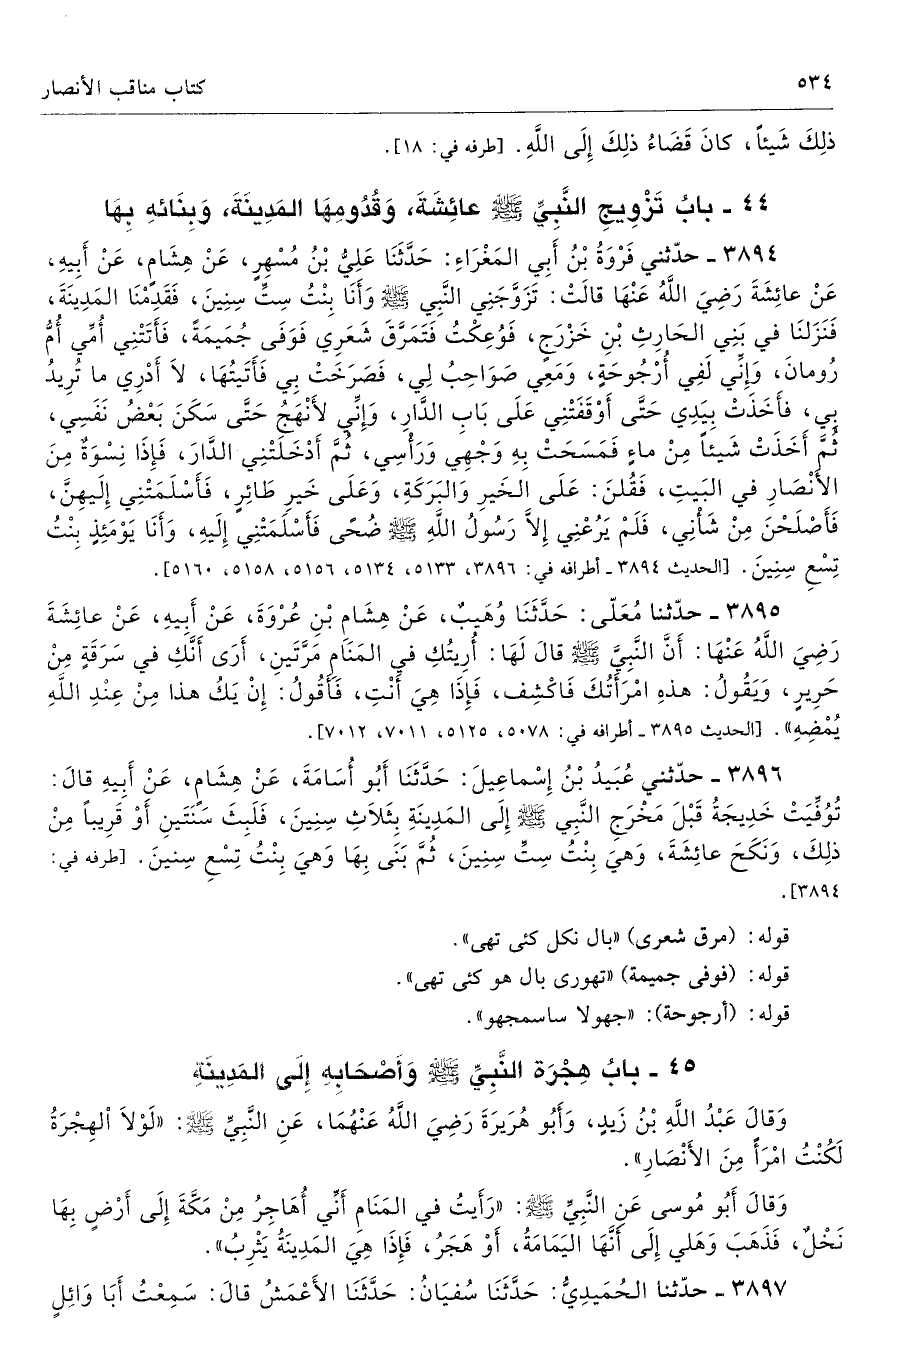 ٥٣٤ كتاب مناقب الأنصار
ذلِكَ شَيئاً، كانَ قَضَاءُ ذلِكَ إِلَى اللَّهِ. [طرفه في: ١٨].
٤٤ ـ بابُ تَزْوِيجِ النَّبِيِّ ﷺ عائِشَةَ، وَقُدُومِهَا المَدِينَةَ، وَبِنَائه بِهَا
٣٨٩٤ ـ حدّثني فَرْوَةُ بْنُ أَبِي المَغْرَاءِ: حَدَّثَنَا عَلِيُّ بْنُ مُسْهِرٍ، عَنْ هِشَامٍ، عَنْ أَبِيهِ،
عَنْ عائِشَةَ رَضِيَ اللَّهُ عَنْهَا قالَتْ: تَزَوَّجَنِي النَّبِي ﷺ وَأَنَا بِنْتُ سِتِّ سِنِينَ، فَقَدِمْنَا المَدِينَةَ،
فَنَزَلنَا في بَنِي الحَارِثِ بْنِ خَزْرَجٍ، فَوُعِكْتُ فَتَمَرَّقَ شَعَرِي فَوَفَى جُمَيمَةً، فَأَتَتْنِي أُمِّي أُمُّ
رُومانَ، وَإِنِّي لَفِي أُرْجُوحَةٍ، وَمَعِي صَوَاحِبُ لِي، فَصَرَخَتْ بِي فَأَتَيتُهَا، لاَ أَدْرِي ما تُرِيدُ
بِي، فأَخَذَتْ بِيَدِي حَتَّى أَوْقَفَتْنِي عَلَى بَابِ الدَّارِ، وَإِنِّي لأَنْهَجُ حَتَّى سَكَنَ بَعْضُ نَفَسِي،
ثُمَّ أَخَذَتْ شَيئاً مِنْ ماءٍ فَمَسَحَتْ بِهِ وَجْهِي وَرَأْسِي، ثُمَّ أَدْخَلَتْنِي الدَّارَ، فَإِذَا نِسْوَةٌ مِنَ
الأَنْصَارِ في البَيتِ، فَقُلنَ: عَلَى الخَيرِ وَالبَرَكَةِ، وَعَلَى خَيرِ طَائِرٍ، فَأَسْلَمَتْنِي إِلَيهِنَّ،
فَأَصْلَحْنَ مِنْ شَأْنِي، فَلَمْ يَرُعْنِي إِلاَّ رَسُولُ اللَّهِ ﷺ ضُحًى فَأَسْلَمَتْنِي إِلَيهِ، وَأَنَا يَوْمَئِذٍ بِنْتُ
تِسْعِ سِنِينَ. [الحديث ٣٨٩٤ ـ أطرافه في: ٣٨٩٦، ٥١٣٣، ٥١٣٤، ٥١٥٦، ٥١٥٨، ٥١٦٠].
٣٨٩٥ ـ حدّثنا مُعَلّى: حَدَّثَنَا وُهَيبٌ، عَنْ هِشَامِ بْنِ عُرْوَةَ، عَنْ أَبِيهِ، عَنْ عائِشَةَ
رَضِيَ اللَّهُ عَنْهَا: أَنَّ النَّبِيَّ ﷺ قالَ لَهَا: أُرِيتُكِ في المَنَامِ مَرَّتَينِ، أَرَى أَنَّكِ في سَرَقَةٍ مِنْ
حَرِيرٍ، وَيَقُولُ: هذهِ امْرَأَتُكَ فَاكْشِف، فَإِذَا هِيَ أَنْتِ، فَأَقُولُ: إِنْ يَكُ هذا مِنْ عِنْدِ اللَّهِ
يُمْضِهِ». [الحديث ٣٨٩٥ ـ أطرافه في: ٥٠٧٨، ٥١٢٥، ٧٠١١، ٧٠١٢].
٣٨٩٦ ـ حدّثني عُبَيدُ بْنُ إِسْماعِيلَ: حَدَّثَنَا أَبُو أُسَامَةَ، عَنْ هِشَامٍ، عَنْ أَبِيهِ قالَ:
تُوُفِّيَتْ خَدِيجَةُ قَبْلَ مَخْرَجِ النَّبِي ﷺ إِلَى المَدِينَةِ بِثَلاَثِ سِنِينَ، فَلَبِثَ سَنَتَينِ أَوْ قَرِيباً مِنْ
ذلِكَ، وَنَكَحَ عائِشَةَ، وَهيَ بِنْتُ سِتِّ سِنِينَ، ثُمَّ بَنَى بِهَا وَهيَ بِنْتُ تِسْعِ سِنينَ. [طرفه في:
٣٨٩٤].
قوله: (مرق شعرى) «بال نكل كئى تهى».
قوله: (فوفى جميمة) «تهورى بال هو كئى تهى».
قوله: (أرجوحة): «جهولا ساسمجهو».
٤٥ ـ بابُ هِجْرَة النَّبِيِّ ﷺ وَأَصْحَابِهِ إِلَى المَدِينَةِ
وَقالَ عَبْدُ اللَّهِ بْنُ زَيدٍ، وَأَبُو هُرَيرَةَ رَضِيَ اللَّهُ عَنْهُمَا، عَنِ النَّبِيِّ ﷺ: «لَوْلاَ الْهِجْرَةُ
لَكُنْتُ امْرَأً مِنَ الأَنْصَارِ».
وَقالَ أَبُو مُوسى عَنِ النَّبِيِّ ﷺ: «رَأَيتُ في المَنَامِ أَنِّي أُهَاجِرُ مِنْ مَكَّةَ إِلَى أَرْضٍ بِهَا
نَخْلٌ، فَذَهَبَ وَهَلي إِلَى أَنَّهَا اليَمَامَةُ، أَوْ هَجَرُ، فَإِذَا هِيَ المَدِينَةُ يَثْرِبُ».
٣٨٩٧ ـ حدّثنا الحُمَيدِيُّ: حَدَّثَنَا سُفيَانُ: حَدَّثَنَا الأَعْمَشُ قالَ: سَمِعْتُ أَبَا وَائِلٍ